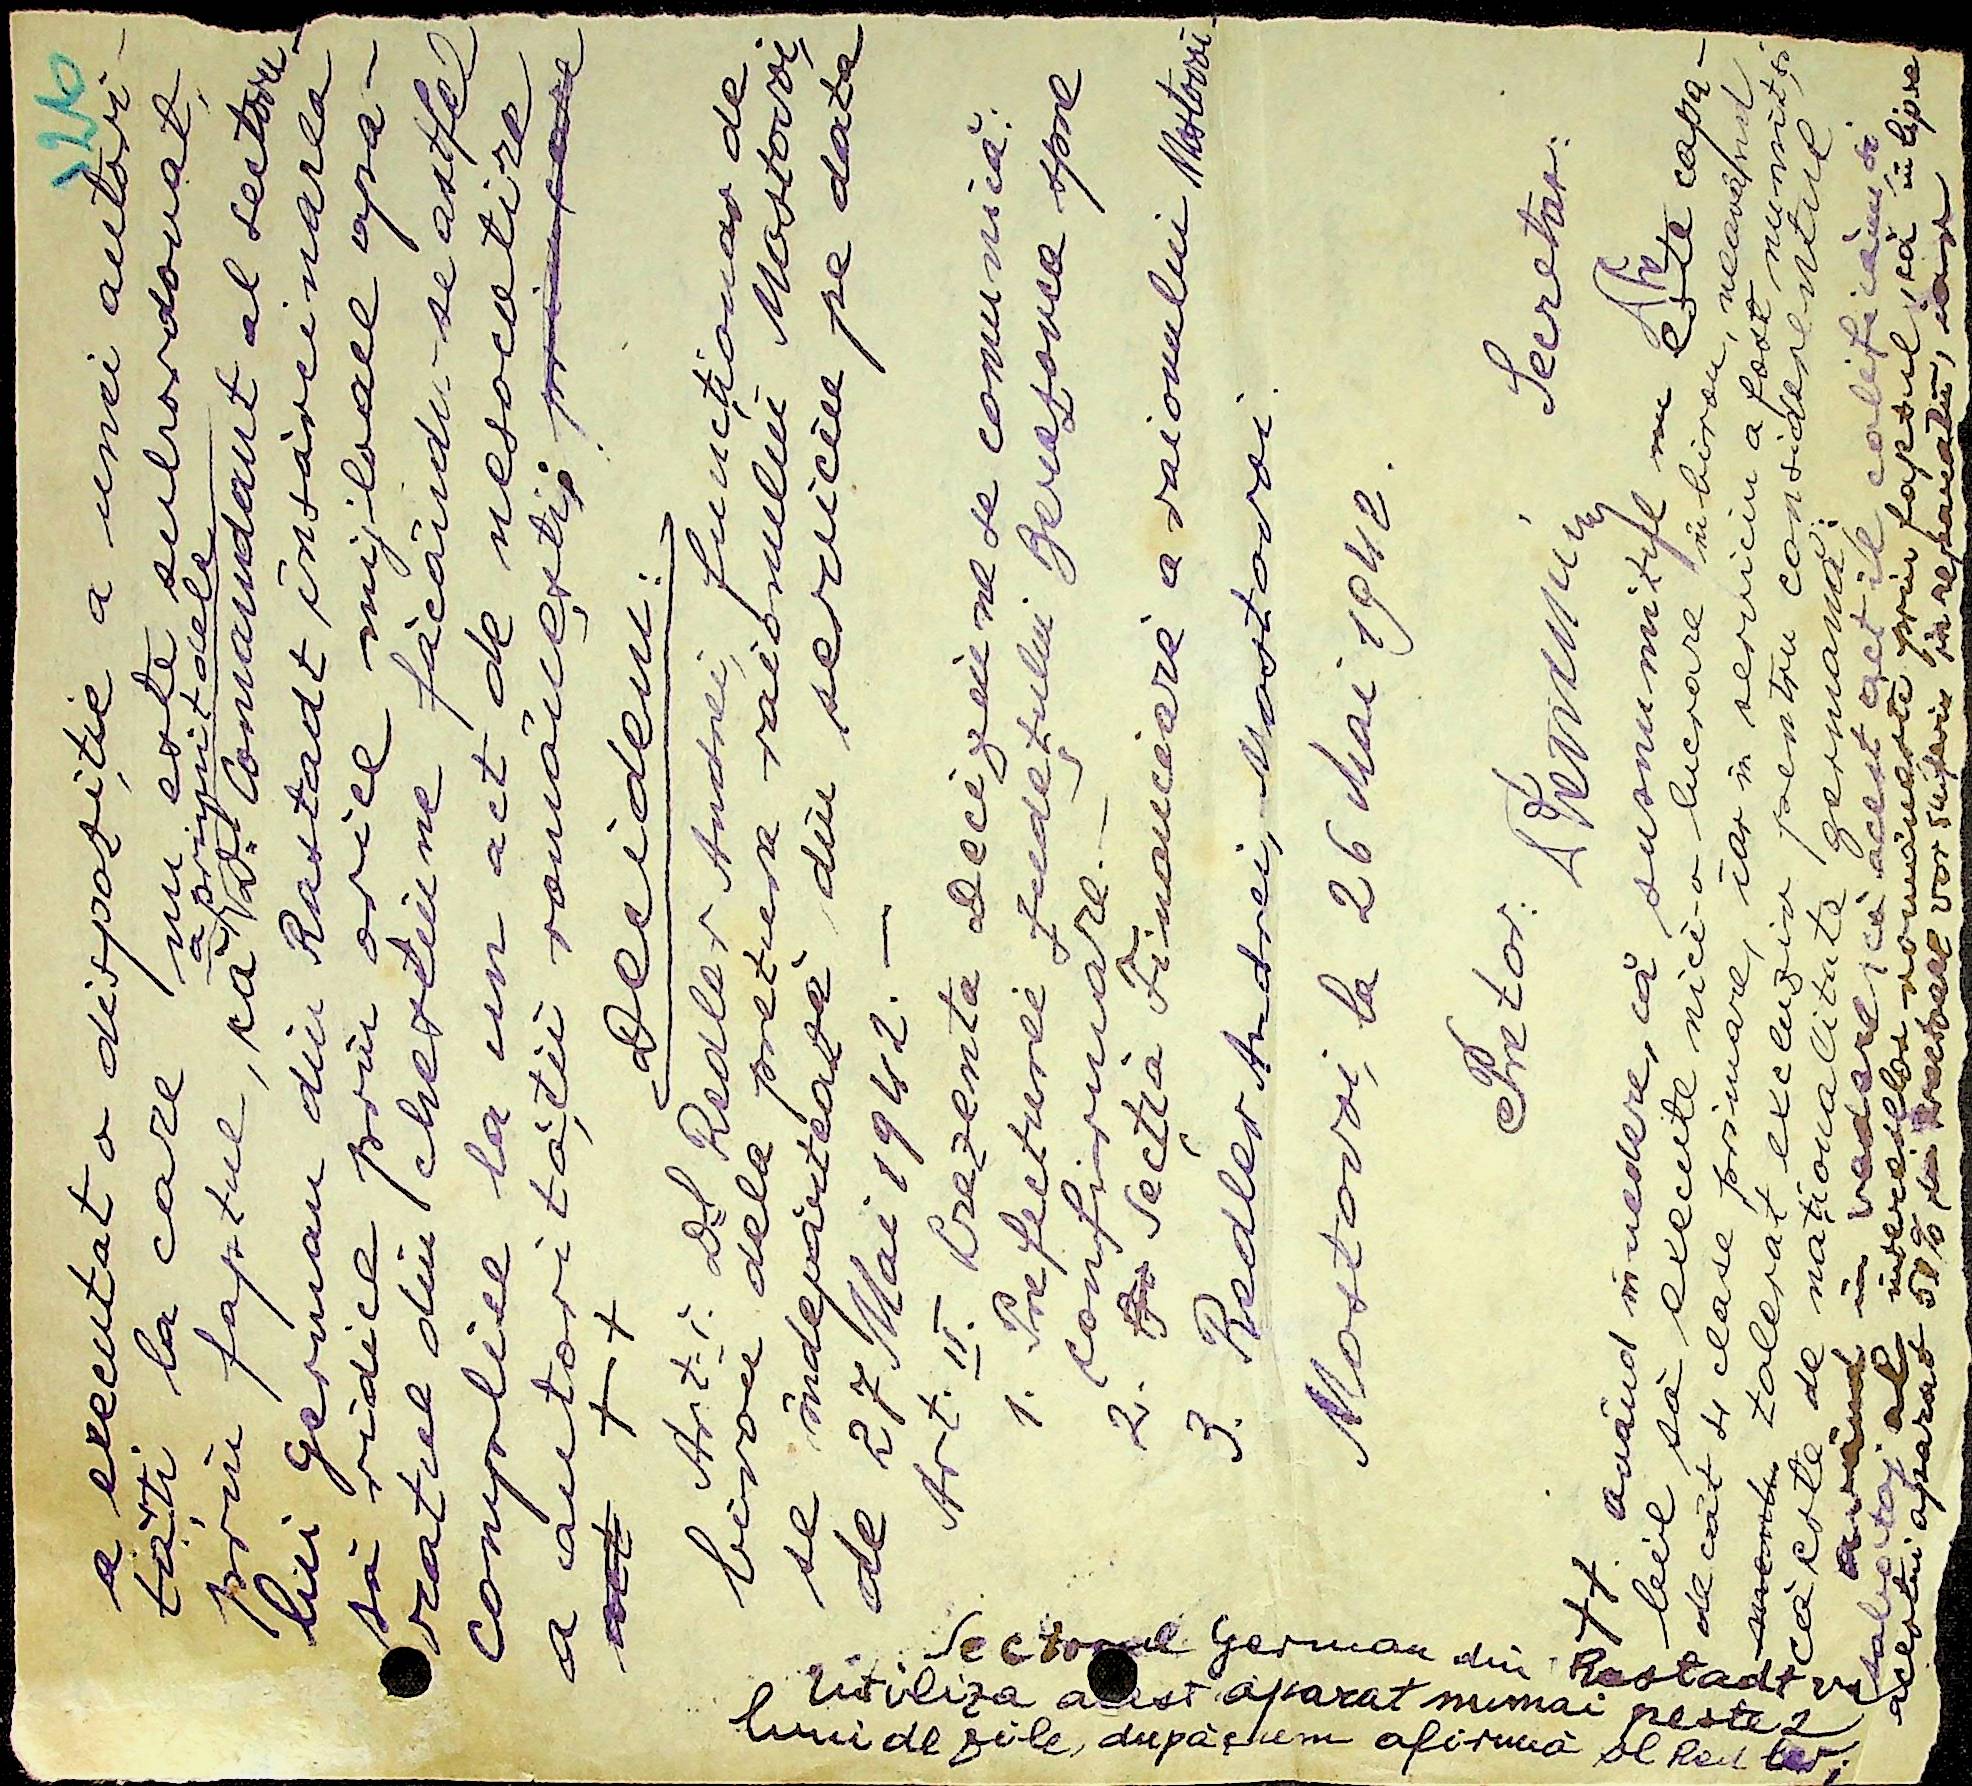 240
a executat o dispoziție a unei autori-
tăți la care nu este subordonat,
a primit dela
prin faptul, că Dl. Comandant al sectoru-
lui German din Rastadt însărcinarea
să ridice prin orice mijloace apa-
ratul din chestiune făcându-se astfel
complice la un act de nesocotire
a autorității românești; prin care
++
Decidem:
Art. I. Dl Redler Andrei, funcționar de
birou dela pretura raionului Mostovoi,
se îndepărtează din serviciu pe data
de 27 Mai 1942.—
Art. II. Prezenta Deciziune se comunică:
1. Prefecturei Județului Berezovca spre
confirmare.—
2. Secția Financiară a raionului Mostovoi
3. Redler Andrei, Mostovoi.
Mostovoi, la 26 Mai 1942.
Pretor: Secretar:
++. având în vedere, că susnumitul nu este capa-
bil să execute nici-o lucrare în birou, neavând
decât 4 clase primare, iar în serviciu a fost numit și
tolerat exclusiv pentru considerentul
că este de naționalitate germană;
având în vedere, că acest act îl califică și
sabotaj al intereselor românești prin faptul, că în lipsa
acestui aparat 50% din tractoare vor suferi în reparații, iar
Sectorul German din Rastadt va
utiliza acest aparat numai peste 2
luni de zile, după cum afirmă dl Redler;